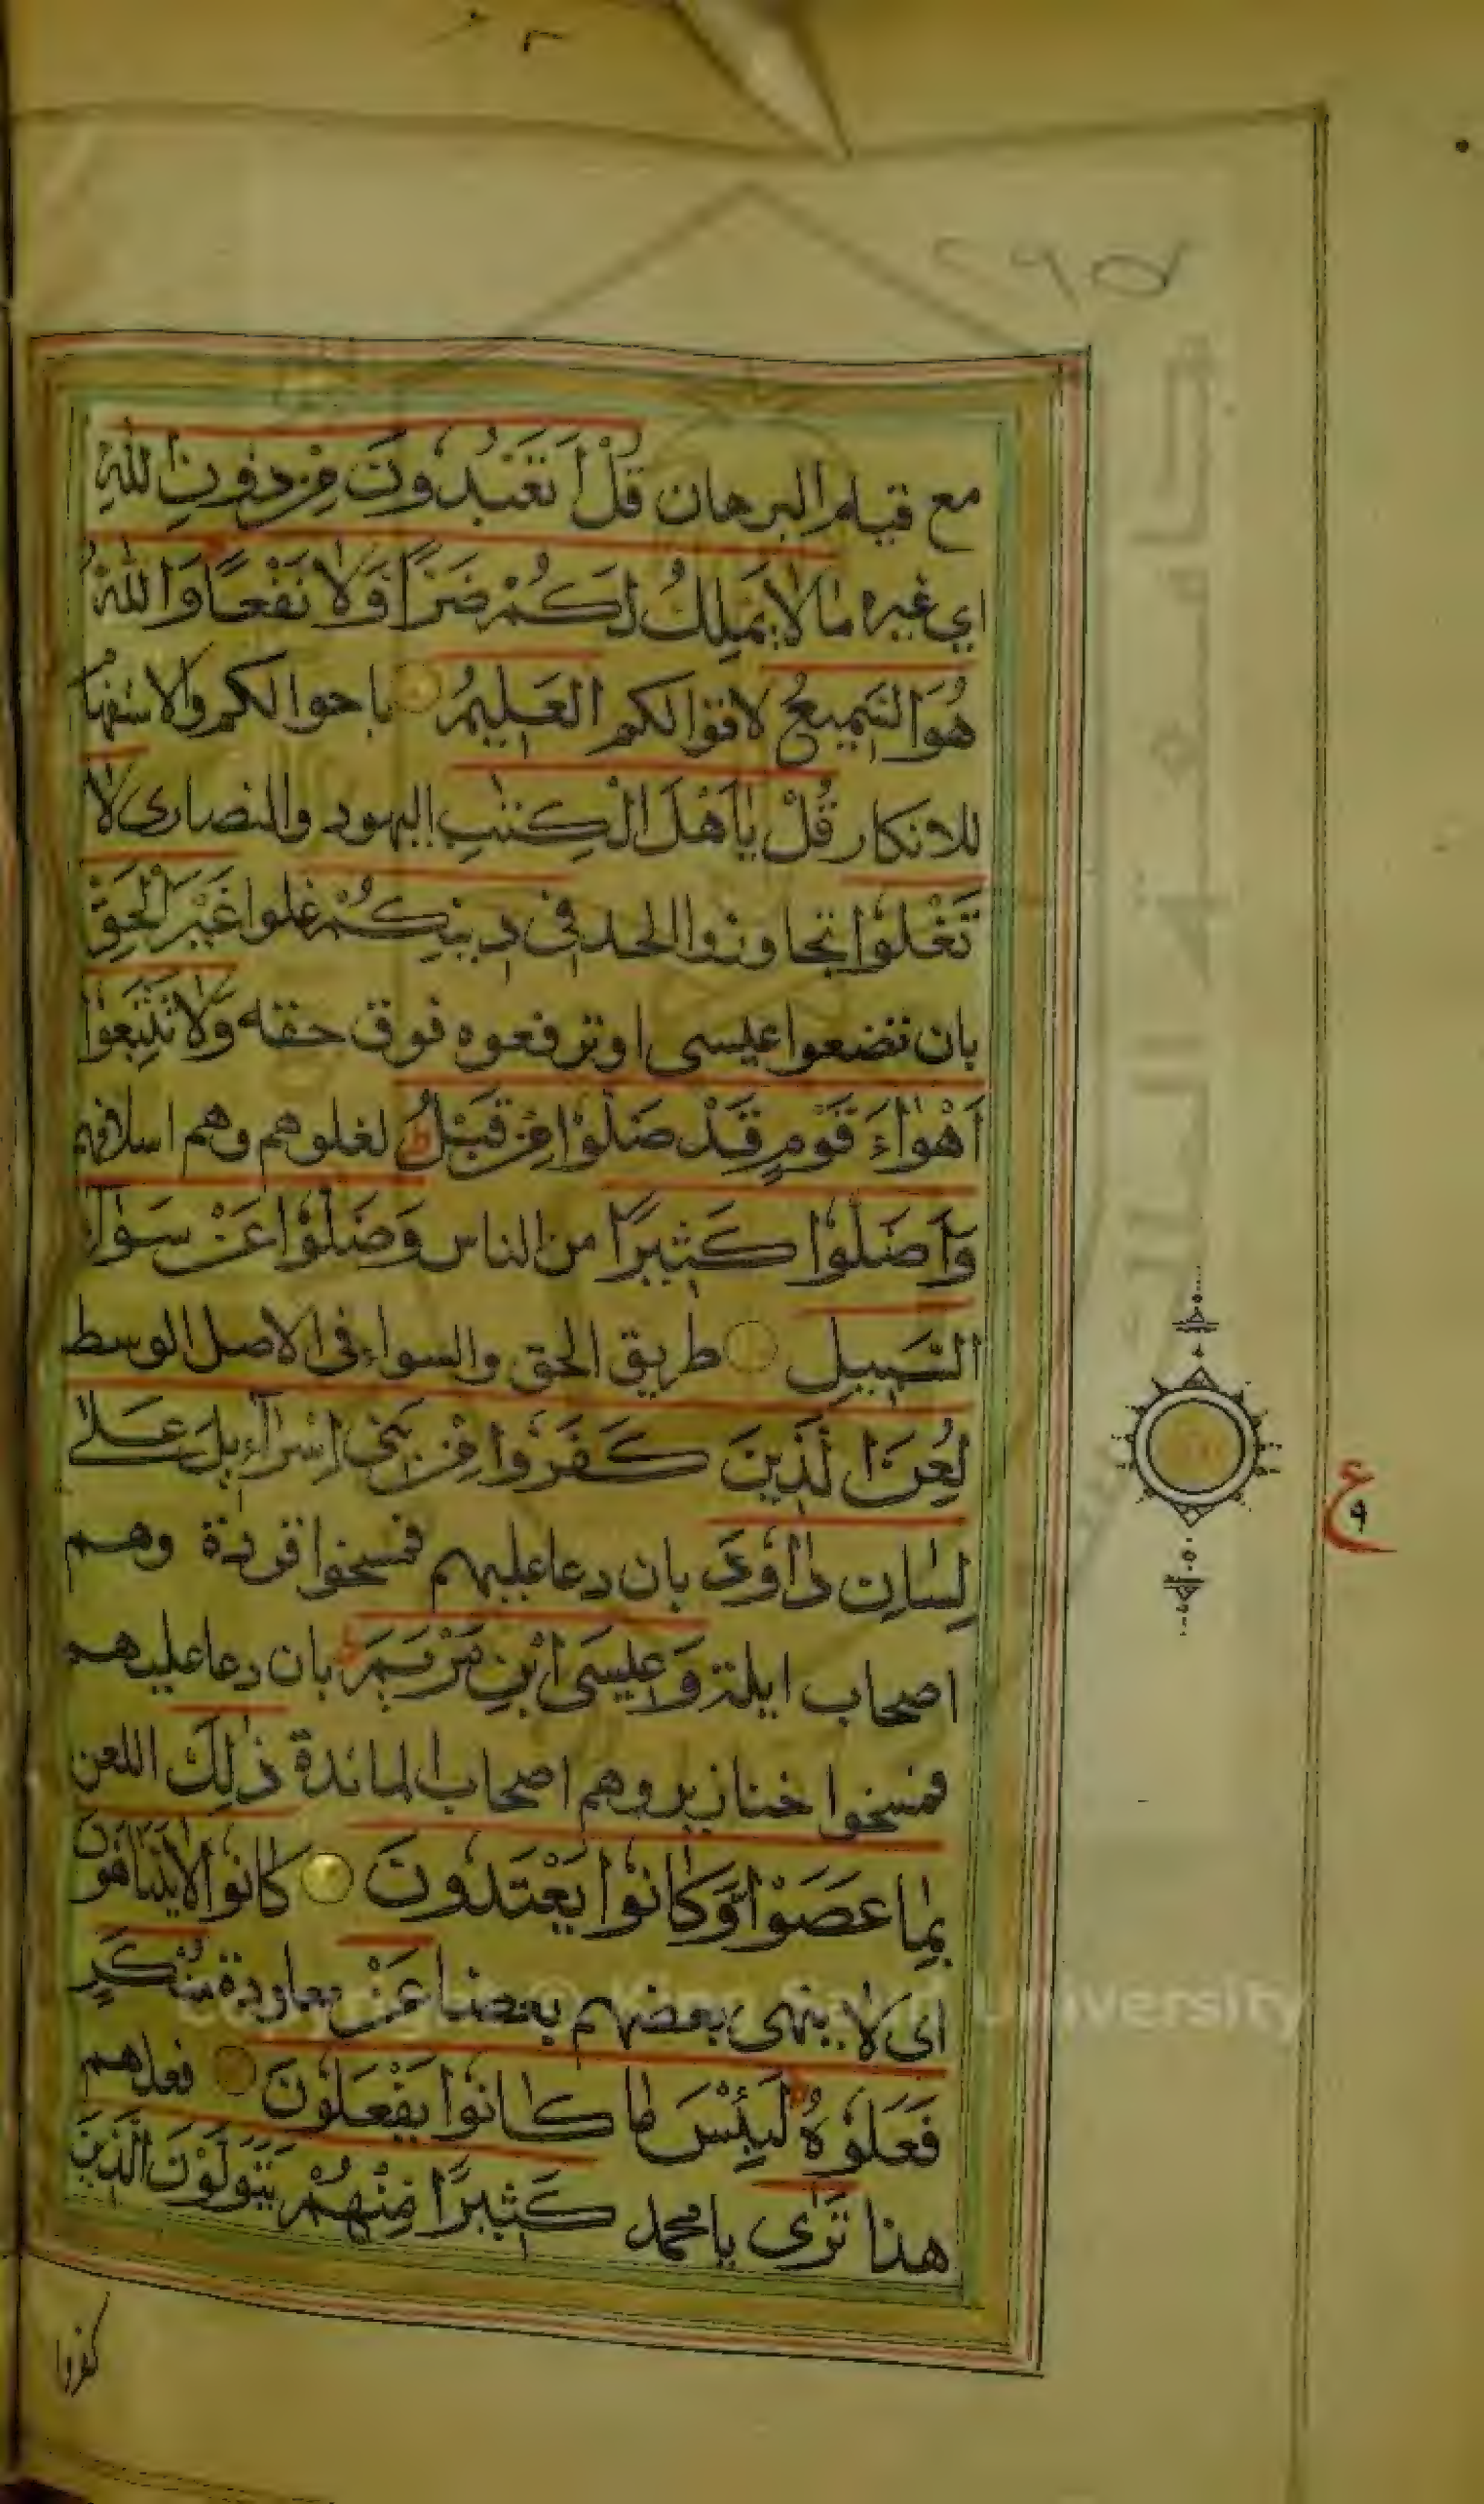 مع قيام البرهان قُلْ أَتَعْبُدُونَ مِنْ دُونِ اللّٰهِ
اي غيره مَا لَا يَمْلِكُ لَكُمْ ضَرًّا وَّلَا نَفْعًا وَاللّٰهُ
هُوَ السَّمِيعُ لاقوالكم الْعَلِيمُ باحوالكم والاستفهام
للانكار قُلْ يٰاَهْلَ الْكِتٰبِ اليهود والنصارى لَا
تَغْلُوْا تجاوزوا الحد فِي دِينِكُمْ غلوا غَيْرَ الْحَقِّ
بان تضعوا عيسى او ترفعوه فوق حقه وَلَا تَتَّبِعُوْا
اَهْوَاءَ قَوْمٍ قَدْ ضَلُّوْا مِنْ قَبْلُ ط لغلوهم وهم اسلافهم
وَاَضَلُّوْا كَثِيرًا من الناس وَضَلُّوْا عَنْ سَوَاءِ
السَّبِيلِ طريق الحق والسواء في الاصل الوسط
لُعِنَ الَّذِينَ كَفَرُوْا مِنْ بَنِي اِسْرَاءِيلَ عَلٰى
لِسَانِ دَاوٗدَ بان دعا عليهم فمسخوا قردة وهم
اصحاب ايلة وَعِيسَى ابْنِ مَرْيَمَ ط بان دعا عليهم
فمسخوا خنازير وهم اصحاب المائدة ذٰلِكَ اللعن
بِمَا عَصَوْا وَّكَانُوْا يَعْتَدُونَ كَانُوْا لَا يَتَنَاهَوْنَ
اى لا ينهى بعضهم بعضا عَنْ معاودة مُنْكَرٍ
فَعَلُوْهُ ط لَبِئْسَ مَا كَانُوْا يَفْعَلُوْنَ فعلهم
هذا تَرٰى يا محمد كَثِيرًا مِّنْهُمْ يَتَوَلَّوْنَ الَّذِينَ
كفروا
ع
٩
Copyright © King Saud University